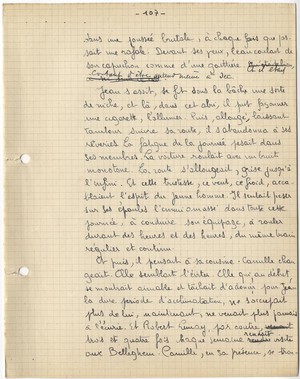 - 107 -
dans une poussée brutale, à chaque fois que pas-
sait une rafale. Devant ses yeux, l'eau coulait de
son capuchon comme d'une gouttière.
à sec.
Jean s'assit, se fit dans la bâche une sorte
de niche, et là, dans cet abri, il put façonner
une cigarette, l'allumer. Puis, allongé, laissant
suivre sa route, il s'abandonna à ses
rêveries. La fatigue de la journée pesait dans
ses membres. La voiture roulait avec un bruit
monotone. La route s'allongeait, grise jusqu'à
l'infini. Et cette tristesse, ce vent, ce froid, accab-
laient l'esprit du jeune homme. Il sentait peser
sur ses épaules l'ennui amassé dans toute cette
journée, à conduire son équipage, à rouler
durant des heures et des heures, du même train
régulier et continu.
Et puis, il pensait à sa cousine. Camille chan-
geait. Elle semblait l'éviter. Elle qui au début
se montrait aimable et tâchait d'adoucir pour Jean
la dure période d'acclimatation, ne s'occupait
plus de lui, maintenant, ne venait plus jamais
à l'écurie. Et Robert par contre,
trois et quatre fois chaque semaine rendait visite
aux Camille, en sa présence, se trans-